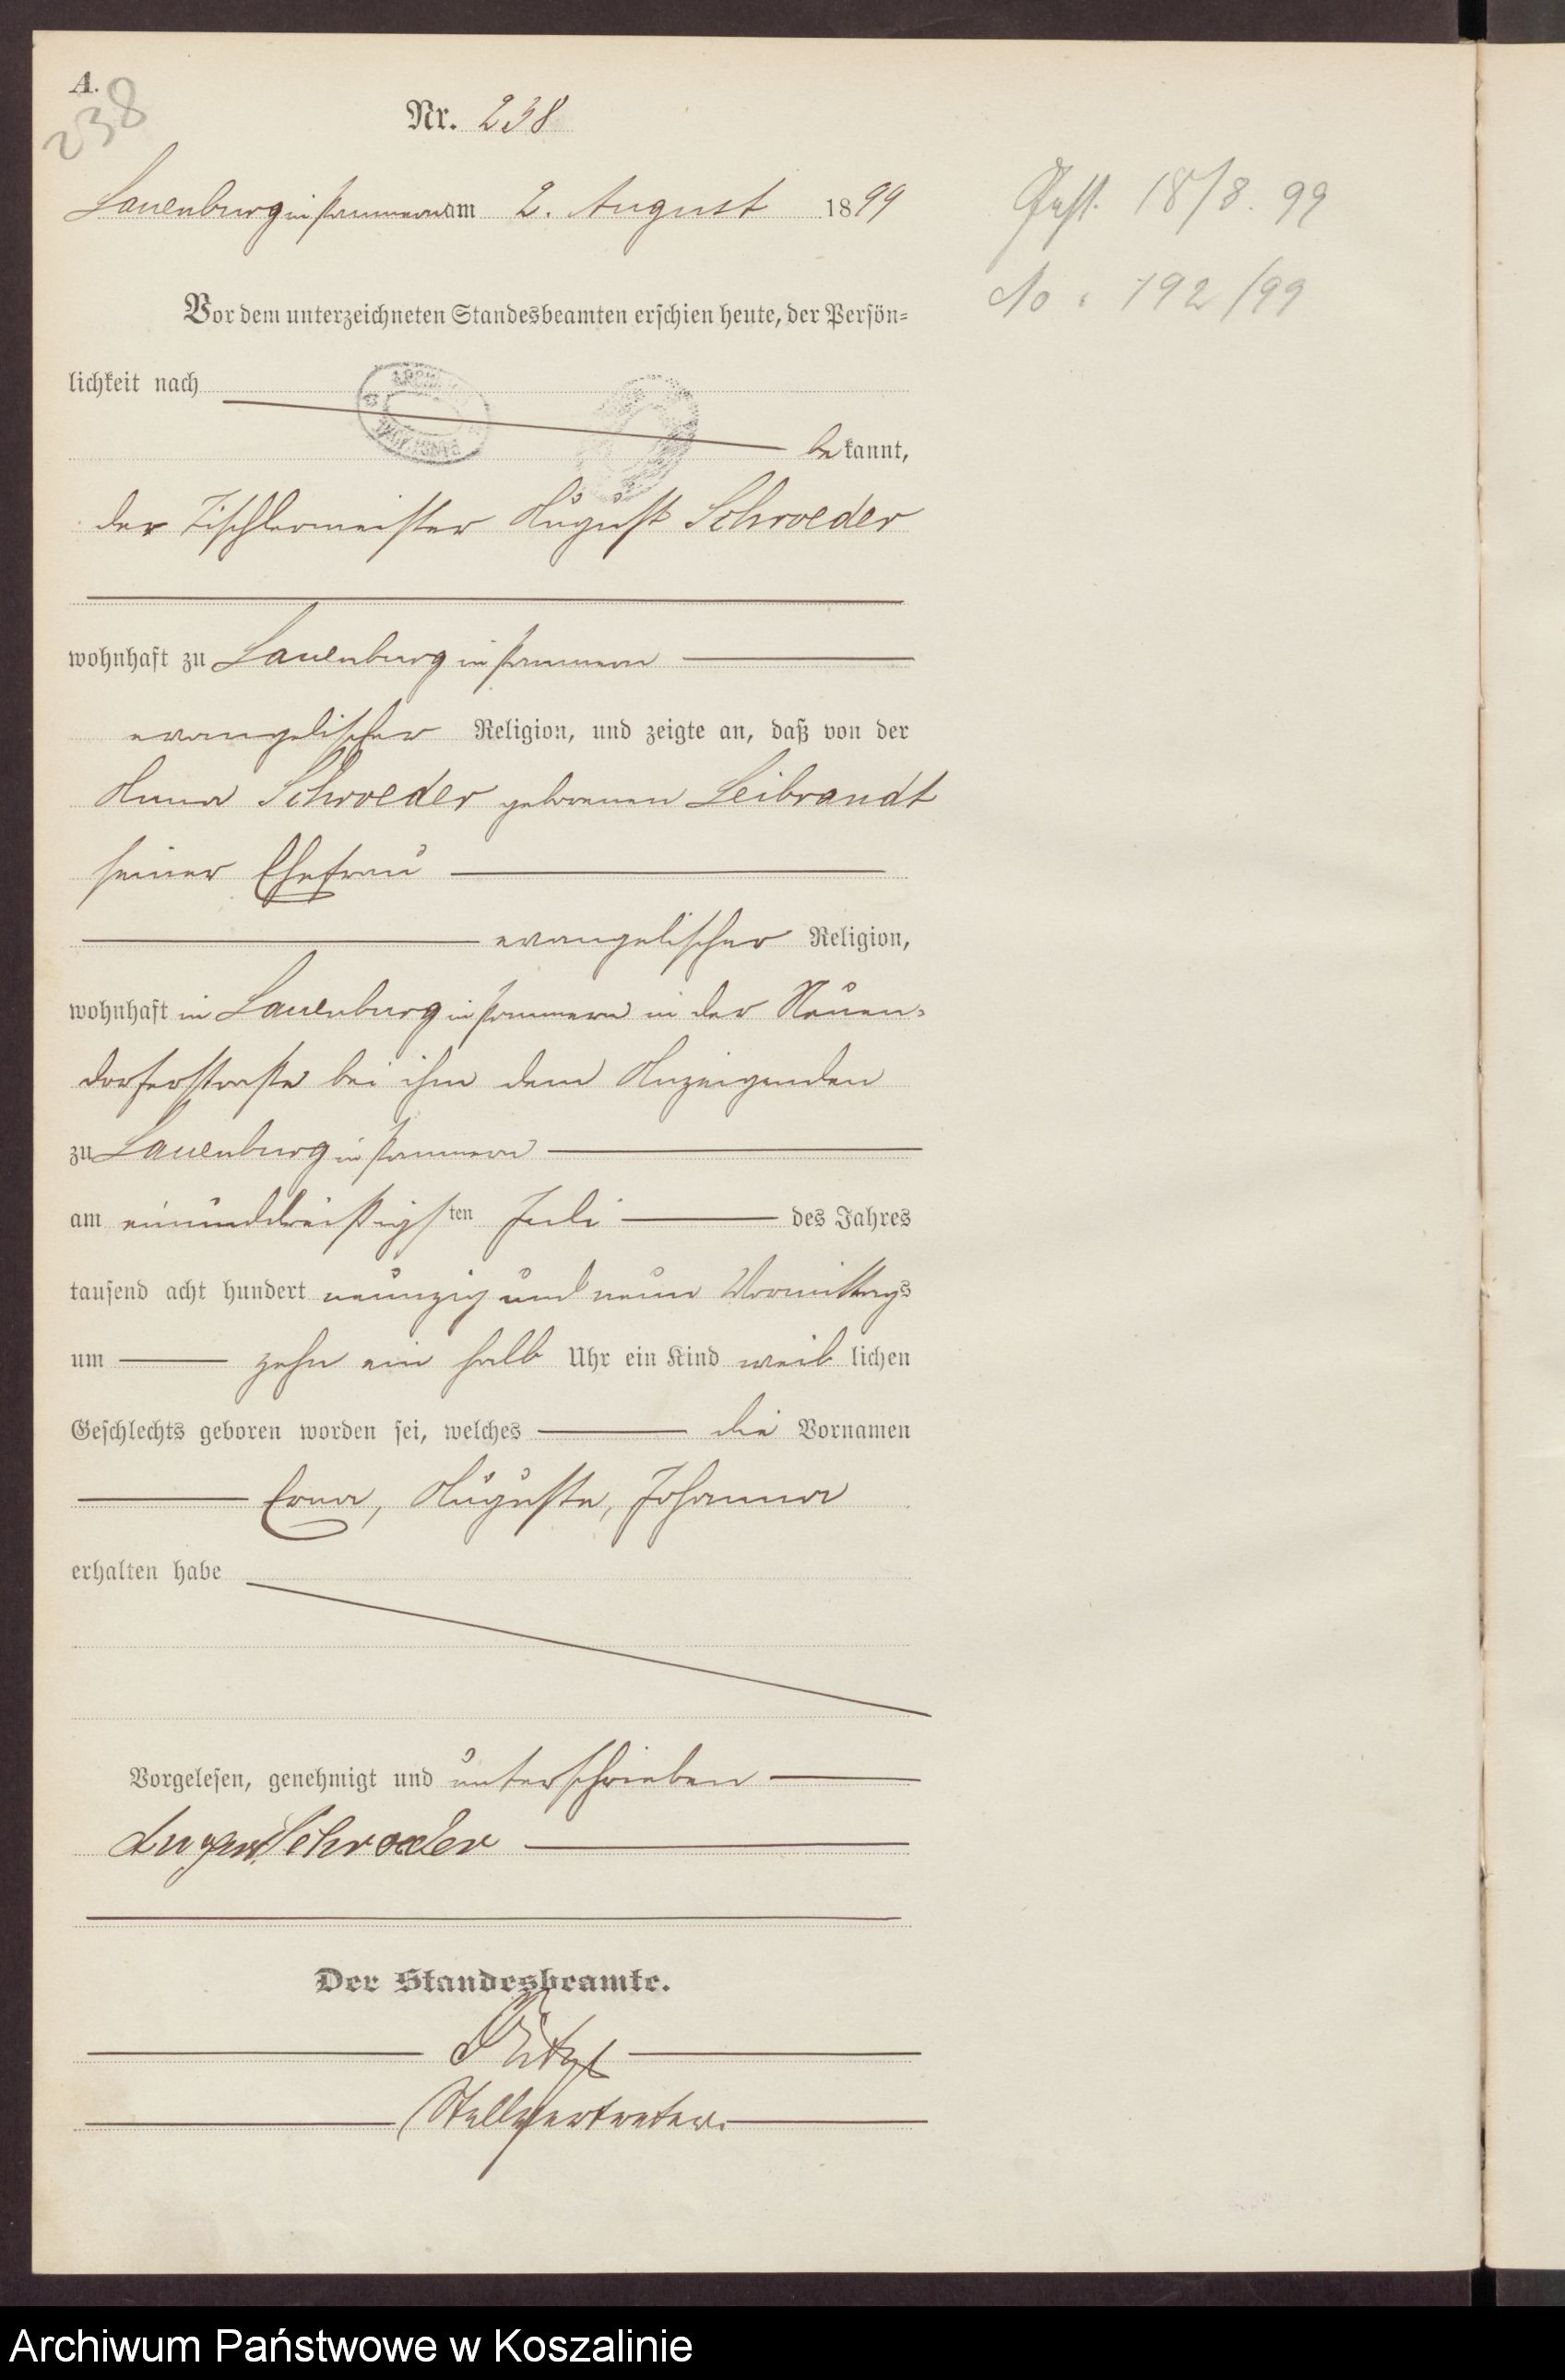 A.
238
Nr. 238
Lauenburg in Pommern am 2. August 1899
Gest. 18/8. 99
No. 192/99
Vor dem unterzeichneten Standesbeamten erschien heute, der Persön-
lichkeit nach
bekannt,
der Tischlermeister August Schroeder
wohnhaft zu Lauenburg in Pommern
evangelischer Religion, und zeigte an, daß von der
Anna Schroeder geborenen Leibrandt
seiner Ehefrau
evangelischer Religion,
wohnhaft in Lauenburg in Pommern in der Neuen-
dorferstraße bei ihm dem Anzeigenden
zu Lauenburg in Pommern
am einunddreißigsten Juli des Jahres
tausend acht hundert neunzig und neun Vormittags
um zehn ein halb Uhr ein Kind weiblichen
Geschlechts geboren worden sei, welches die Vornamen
Erna, Auguste, Johanna
erhalten habe
Vorgelesen, genehmigt und unterschrieben
August Schroeder
Der Standesbeamte.
Stellvertreter.
Archiwum Państwowe w Koszalinie